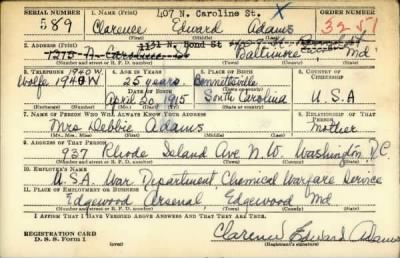 SERIAL NUMBER 1. NAME (Print) ORDER NUMBER
407 N. Caroline St.
589 Clarence Edward Adams 3251
(First) (Middle) (Last)
1131 N. Bond St
2. ADDRESS (Print)
1215 N Caroline St Baltimore, Md
(Number and street or R. F. D. number) (Town) (County) (State)
3. TELEPHONE 4. AGE IN YEARS 5. PLACE OF BIRTH 6. COUNTRY OF CITIZENSHIP
1940 W
Wolfe 1940 W 25 years Bennettsville
DATE OF BIRTH
April 20, 1915 South Carolina U.S.A
(Exchange) (Number) (Mo.) (Day) (Yr.) (State or country)
7. NAME OF PERSON WHO WILL ALWAYS KNOW YOUR ADDRESS 8. RELATIONSHIP OF THAT PERSON
Mrs Debbie Adams Mother
(Mr., Mrs., Miss) (First) (Middle) (Last)
9. ADDRESS OF THAT PERSON
937 Rhode Island Ave N.W. Washington D.C.
(Number and street or R. F. D. number) (Town) (County) (State)
10. EMPLOYER'S NAME
U.S.A. War Department, Chemical Warfare Service
11. PLACE OF EMPLOYMENT OR BUSINESS
Edgewood Arsenal, Edgewood Md
(Number and street or R. F. D. number) (Town) (County) (State)
I AFFIRM THAT I HAVE VERIFIED ABOVE ANSWERS AND THAT THEY ARE TRUE.
REGISTRATION CARD
D. S. S. Form 1
Clarence Edward Adams
(Registrant's signature)